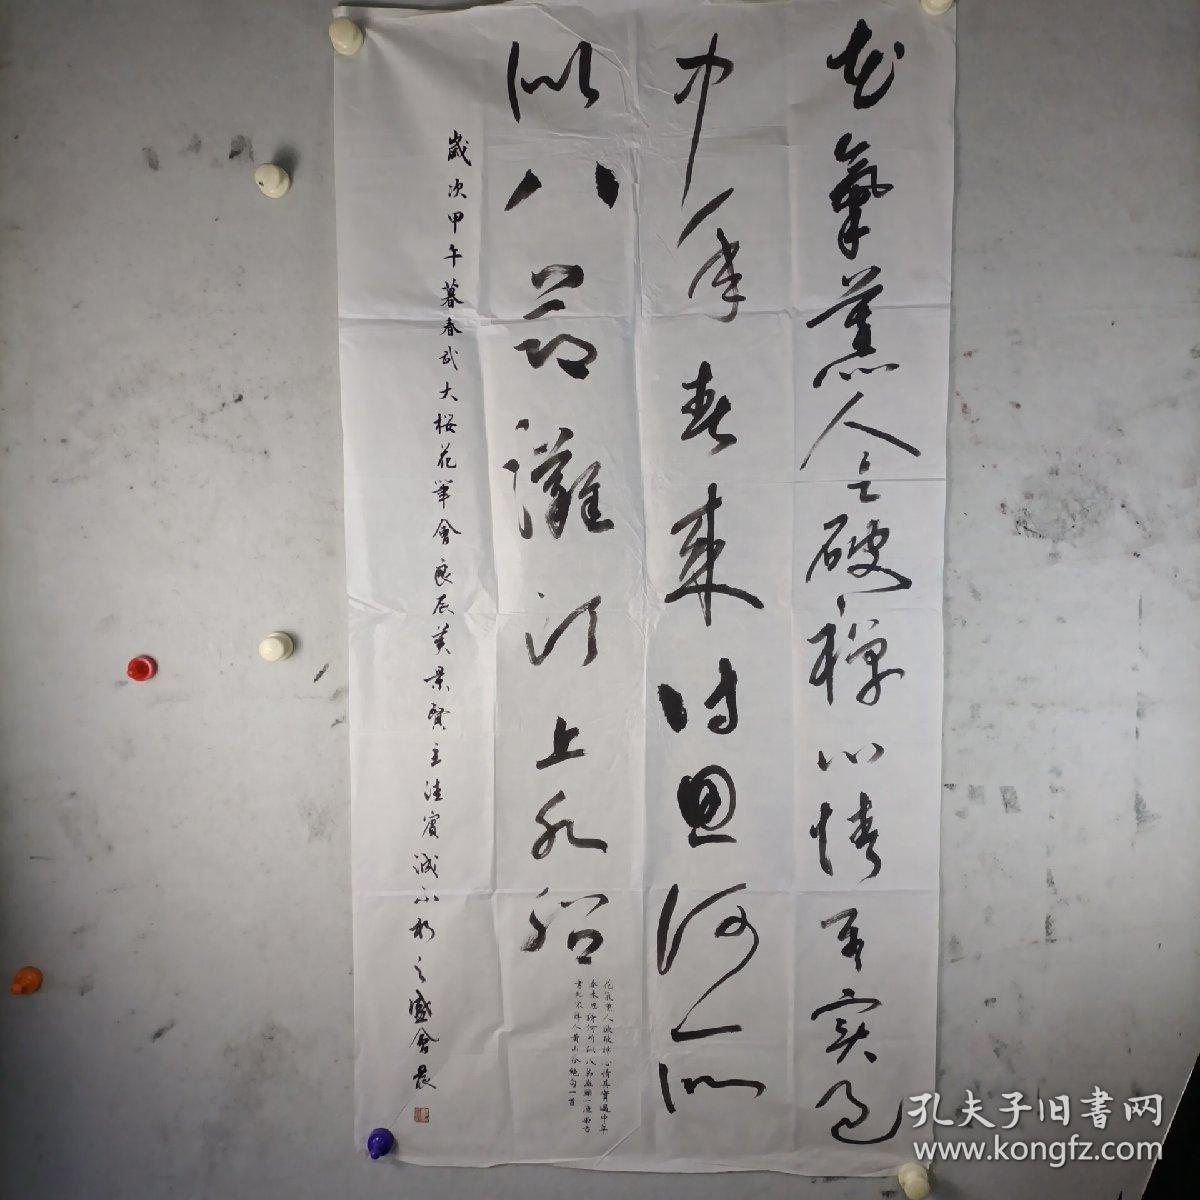 花氣薰人欲破禪心情其實過
中年春來詩思何所
似八節灘頭上水船
花氣薰人欲破禪心情其實過中年
春來思詩何所似八節灘頭
宋詩人黃山谷絕句一首
歲次甲午暮春武大桜花筆會良辰美景賢主佳賓誠不朽之盛會
孔夫子旧書网
www.kongfz.com